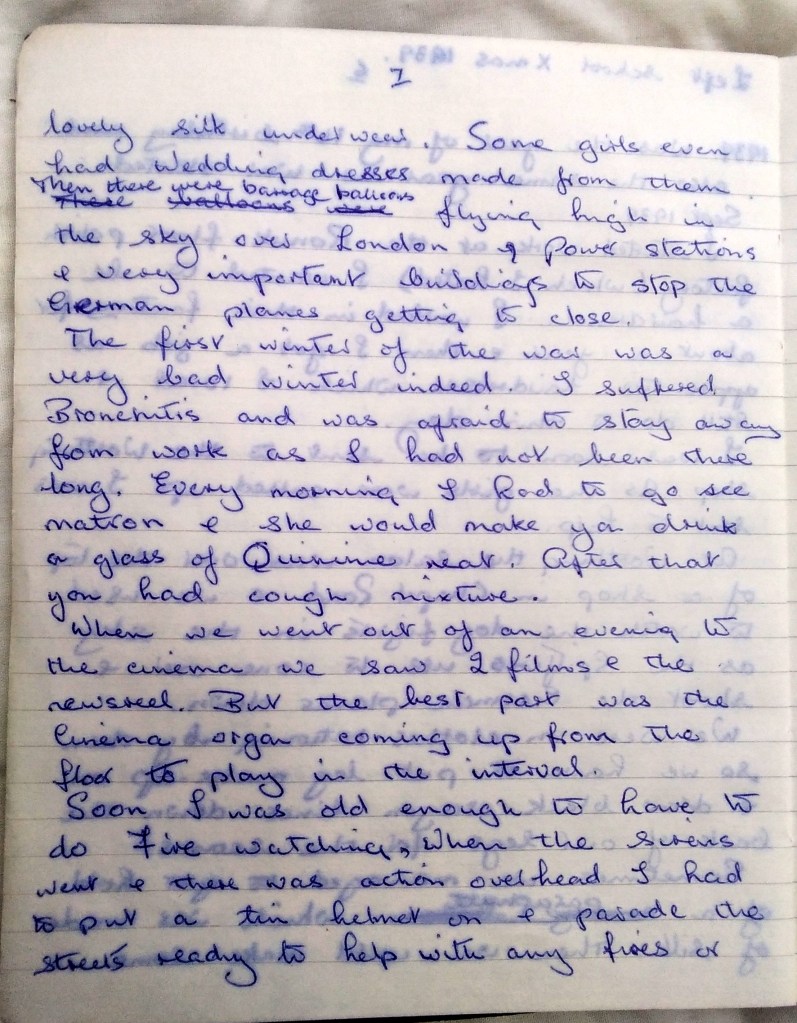 7
lovely silk underwear. Some girls even
had Wedding dresses made from them.
Then there were barrage balloons
These balloons were flying high in
the sky over London & Power stations
& very important buildings to stop the
German planes getting to close.
The first winter of the war was a
very bad winter indeed. I suffered
Bronchitis and was afraid to stay away
from work as I had not been there
long. Every morning I had to go see
matron & she would make you drink
a glass of Quinine neat. After that
you had cough mixture.
When we went out of an evening to
the cinema we saw 2 films & the
newsreel. But the best part was the
Cinema organ coming up from the
floor to play in the interval.
Soon I was old enough to have to
do Fire watching, When the sirens
went & there was action overhead I had
to put a tin helmet on & parade the
streets ready to help with any fires or